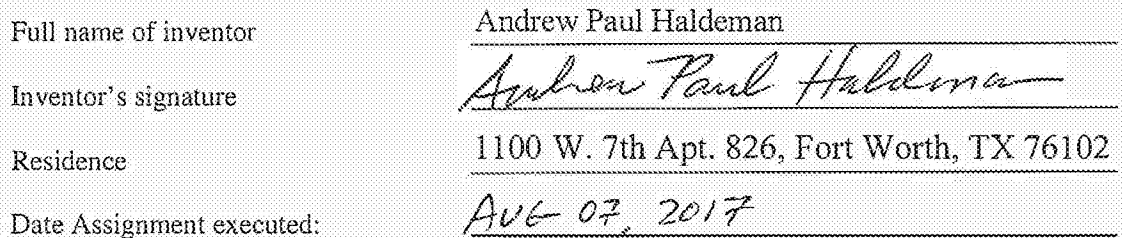 Full name of inventor Andrew Paul Haldeman
Inventor's signature Andrew Paul Haldeman
Residence 1100 W. 7th Apt. 826, Fort Worth, TX 76102
Date Assignment executed: AUG 07, 2017